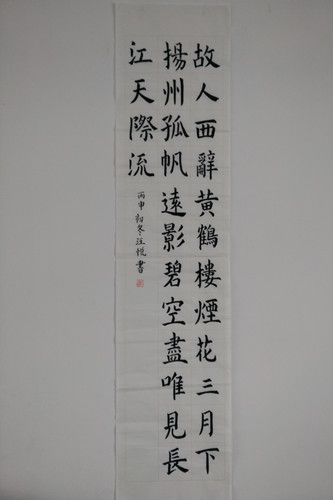 故人西辭黃鶴樓煙花三月下
揚州孤帆遠影碧空盡唯見長
江天際流
丙申初冬汪悅書